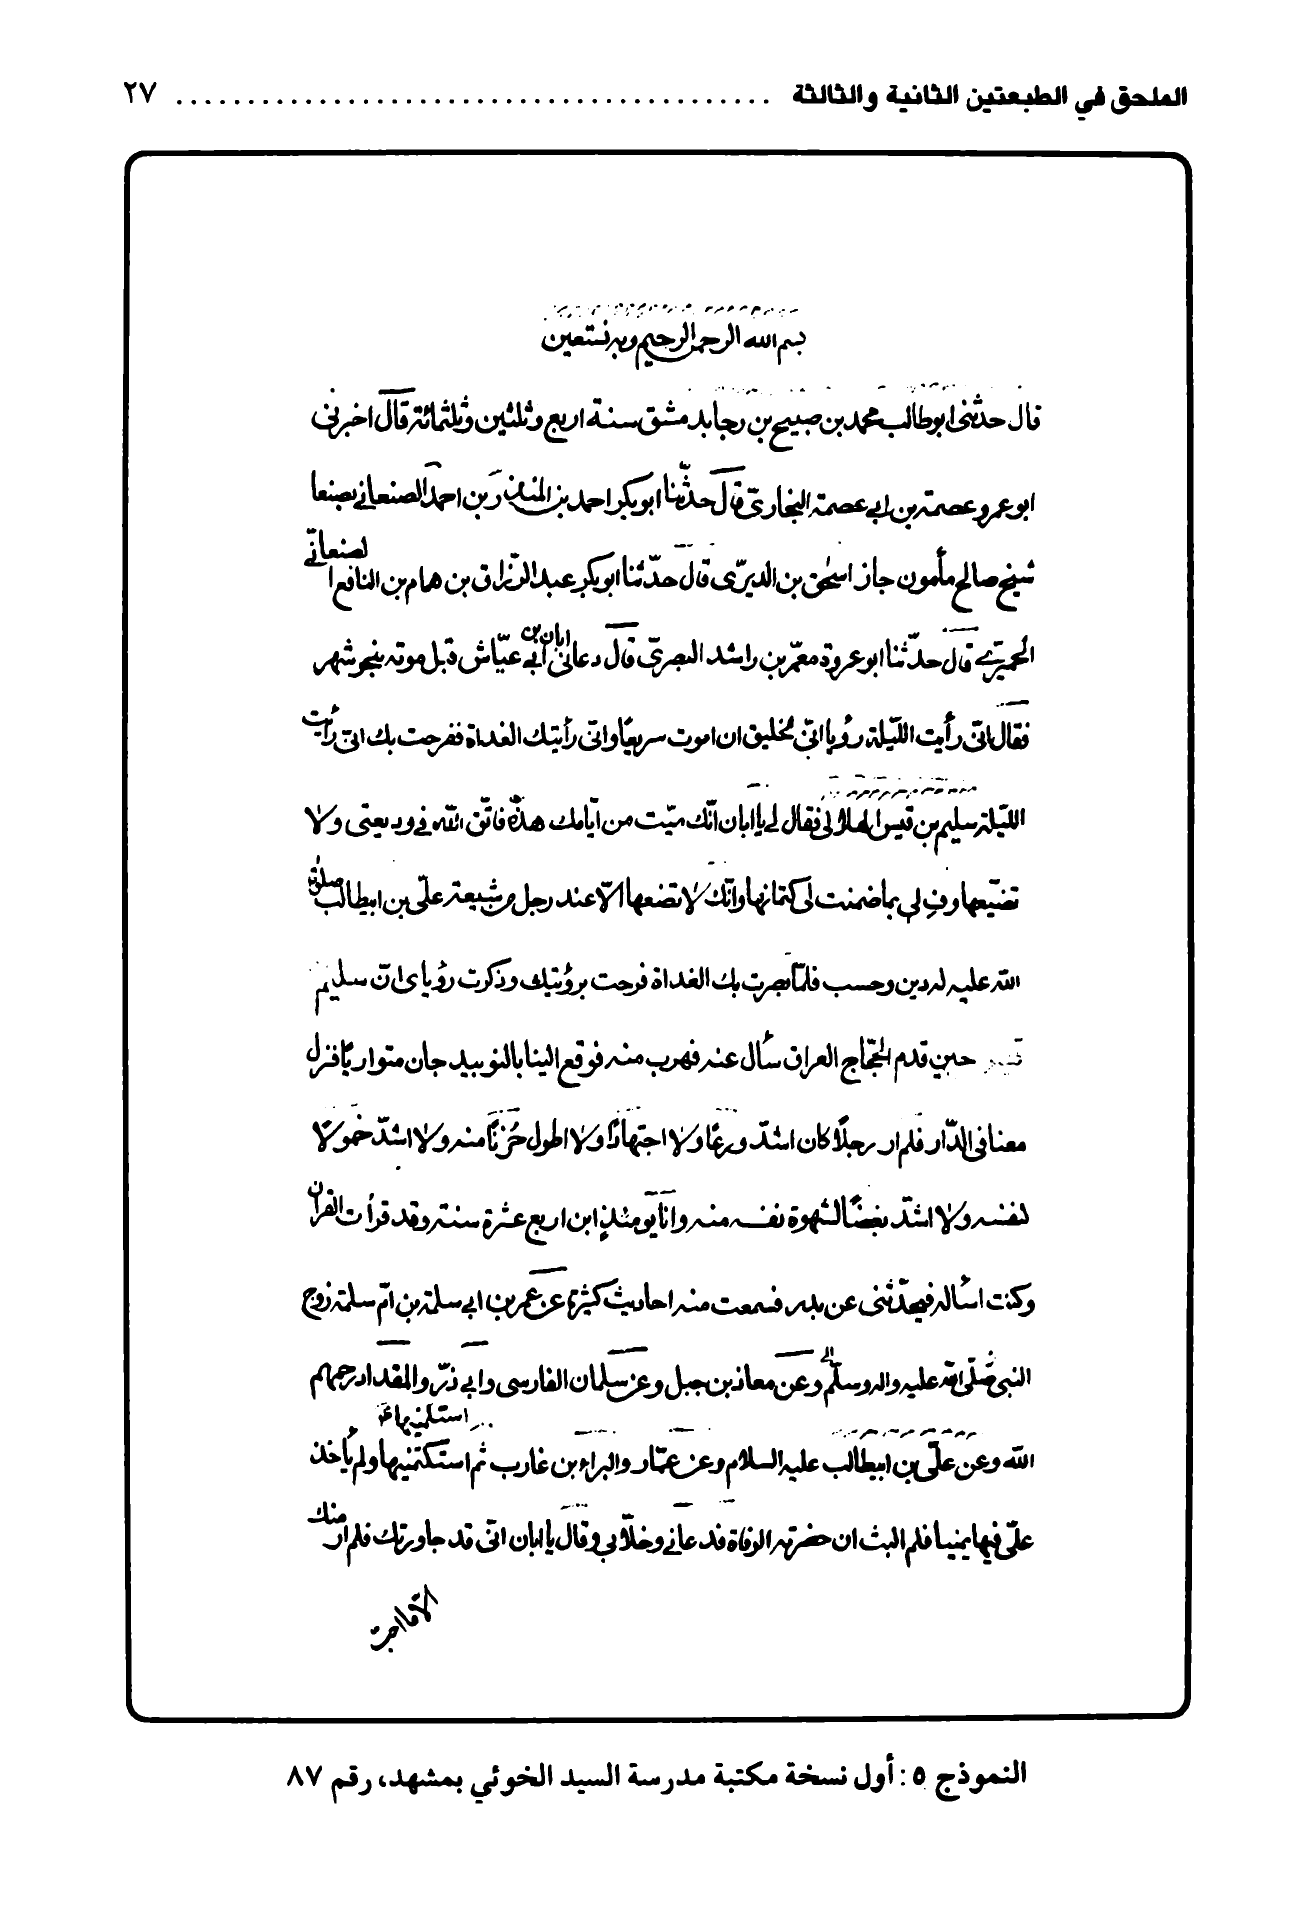 الملحق في الطبعتين الثانية والثالثة ........................................ ٢٧
بسم الله الرحمن الرحيم وبه نستعين
قال حدثنى ابو طالب محمد بن صبيح بن رجا بدمشق سنة اربع وثلثين وثلثمائة قال اخبرنى
ابو عمرو عصمة بن ابي عصمة البخاريّ قال حدّثنا ابو بكر احمد بن المنذر بن احمد الصنعاني بصنعا
شيخ صالح مأمون جاز اسحٰق بن الديرّى قال حدّثنا ابو بكر عبد الرّزاق بن همام بن النافع الصنعانّي
الحميرّي قال حدّثنا ابو عروة معمّر بن راشد البصريّ قال دعانى ابان بن ابي عيّاش قبل موته بنحو شهر
فقال انّى رأيت اللّيلة رؤيا انّي لخليق ان اموت سريعًا وانّى رأيتك الغداة ففرحت بك انّى رأيت
اللّيلة سليم بن قيس الهلالي فقال لي يا ابان انّك ميّت من ايّامك هذه فاتّق اللّه في وديعتى ولا
تضيّعها وفِ لي بما ضمنت لى كتمانها وانّك لا تضعها الّا عند رجل من شيعة علّى بن ابيطالب صلوة
اللّه عليه له دين وحسب فلمّا بصرت بك الغداة فرحت برؤيتك وذكرت رؤياى انّ سليم
قيس حين قدم الحجّاج العراق سأل عنه فهرب منه فوقع الينا بالنوبيدجان متواريًا فنزل
معنا فى الدّار فلم ار رجلًا كان اشدّ ورعًا ولا اجتهادًا ولا اطول حُزنًا منه ولا اشدّ خمولًا
لنفسه ولا اشدّ بغضًا لشهوة نفسه منه وانا يومئذٍ ابن اربع عشرة سنة وقد قرأت القرآن
وكنت اسأله فيحدّثنى عن بدر فسمعت منه احاديث كثيرة عن عمر بن ابي سلمة بن امّ سلمة زوج
النبى صلّى الله عليه واله وسلّم وعن معاذ بن جبل وعن سلمان الفارسى وابي ذرّ والمقداد رحمهم
اللّه وعن علّى بن ابيطالب عليه السلام وعن عمّار والبراء بن غارب ثم استكتمنيها ولم يأخذ
علّى فيها يمينا فلم البث ان حضرته الوفاة فدعاني وخلا بي وقال يا ابان انّى قد جاورتك فلم ار منك
الّا ما احبّ
النموذج ٥: أول نسخة مكتبة مدرسة السيد الخوئي بمشهد، رقم ٨٧